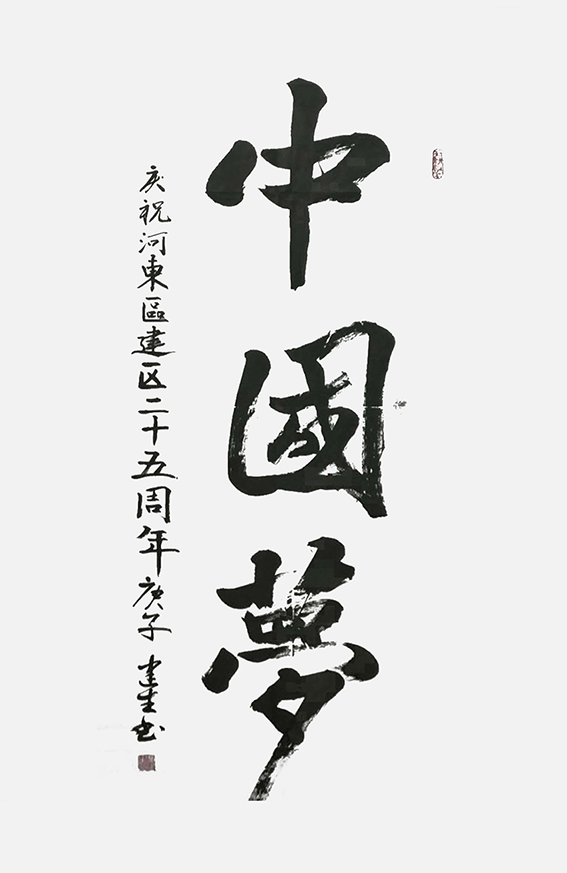 中國夢
庆祝河東區建区二十五周年庚子建生书